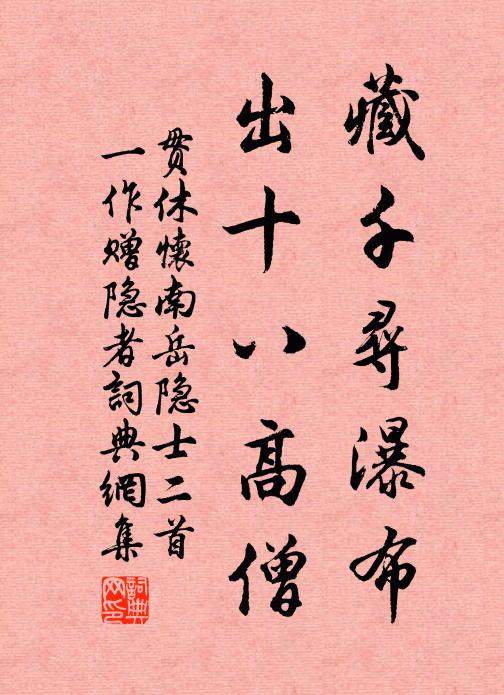 藏千尋瀑布
出十八高僧
贯休懷南岳隐士二首
一作赠隐者詞典網集
詞典
网印